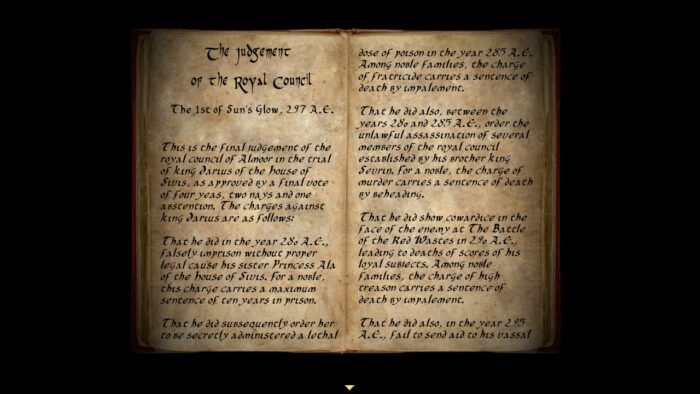 The Judgement
of the Royal Council
The 1st of Sun's Glow, 297 A.E.
This is the final judgement of the
royal council of Almoor in the trial
of king Darius of the house of
Sivis, as approved by a final vote
of four yeas, two nays and one
abstention. The charges against
king Darius are as follows:
That he did in the year 280 A.E.,
falsely imprison without proper
legal cause his sister Princess Ala
of the house of Sivis. For a noble,
this charge carries a maximum
sentence of ten years in prison.
That he did subsequently order her
to be secretly administered a lethal
dose of poison in the year 285 A.E.
Among noble families, the charge
of fratricide carries a sentence of
death by impalement.
That he did also, between the
years 280 and 285 A.E., order the
unlawful assassination of several
members of the royal council
established by his brother king
Sevrin. For a noble, the charge of
murder carries a sentence of death
by beheading.
That he did show cowardice in the
face of the enemy at The Battle
of the Red Wastes in 290 A.E.,
leading to deaths of scores of his
loyal subjects. Among noble
families, the charge of high
treason carries a sentence of
death by impalement.
That he did also, in the year 295
A.E., fail to send aid to his vassal